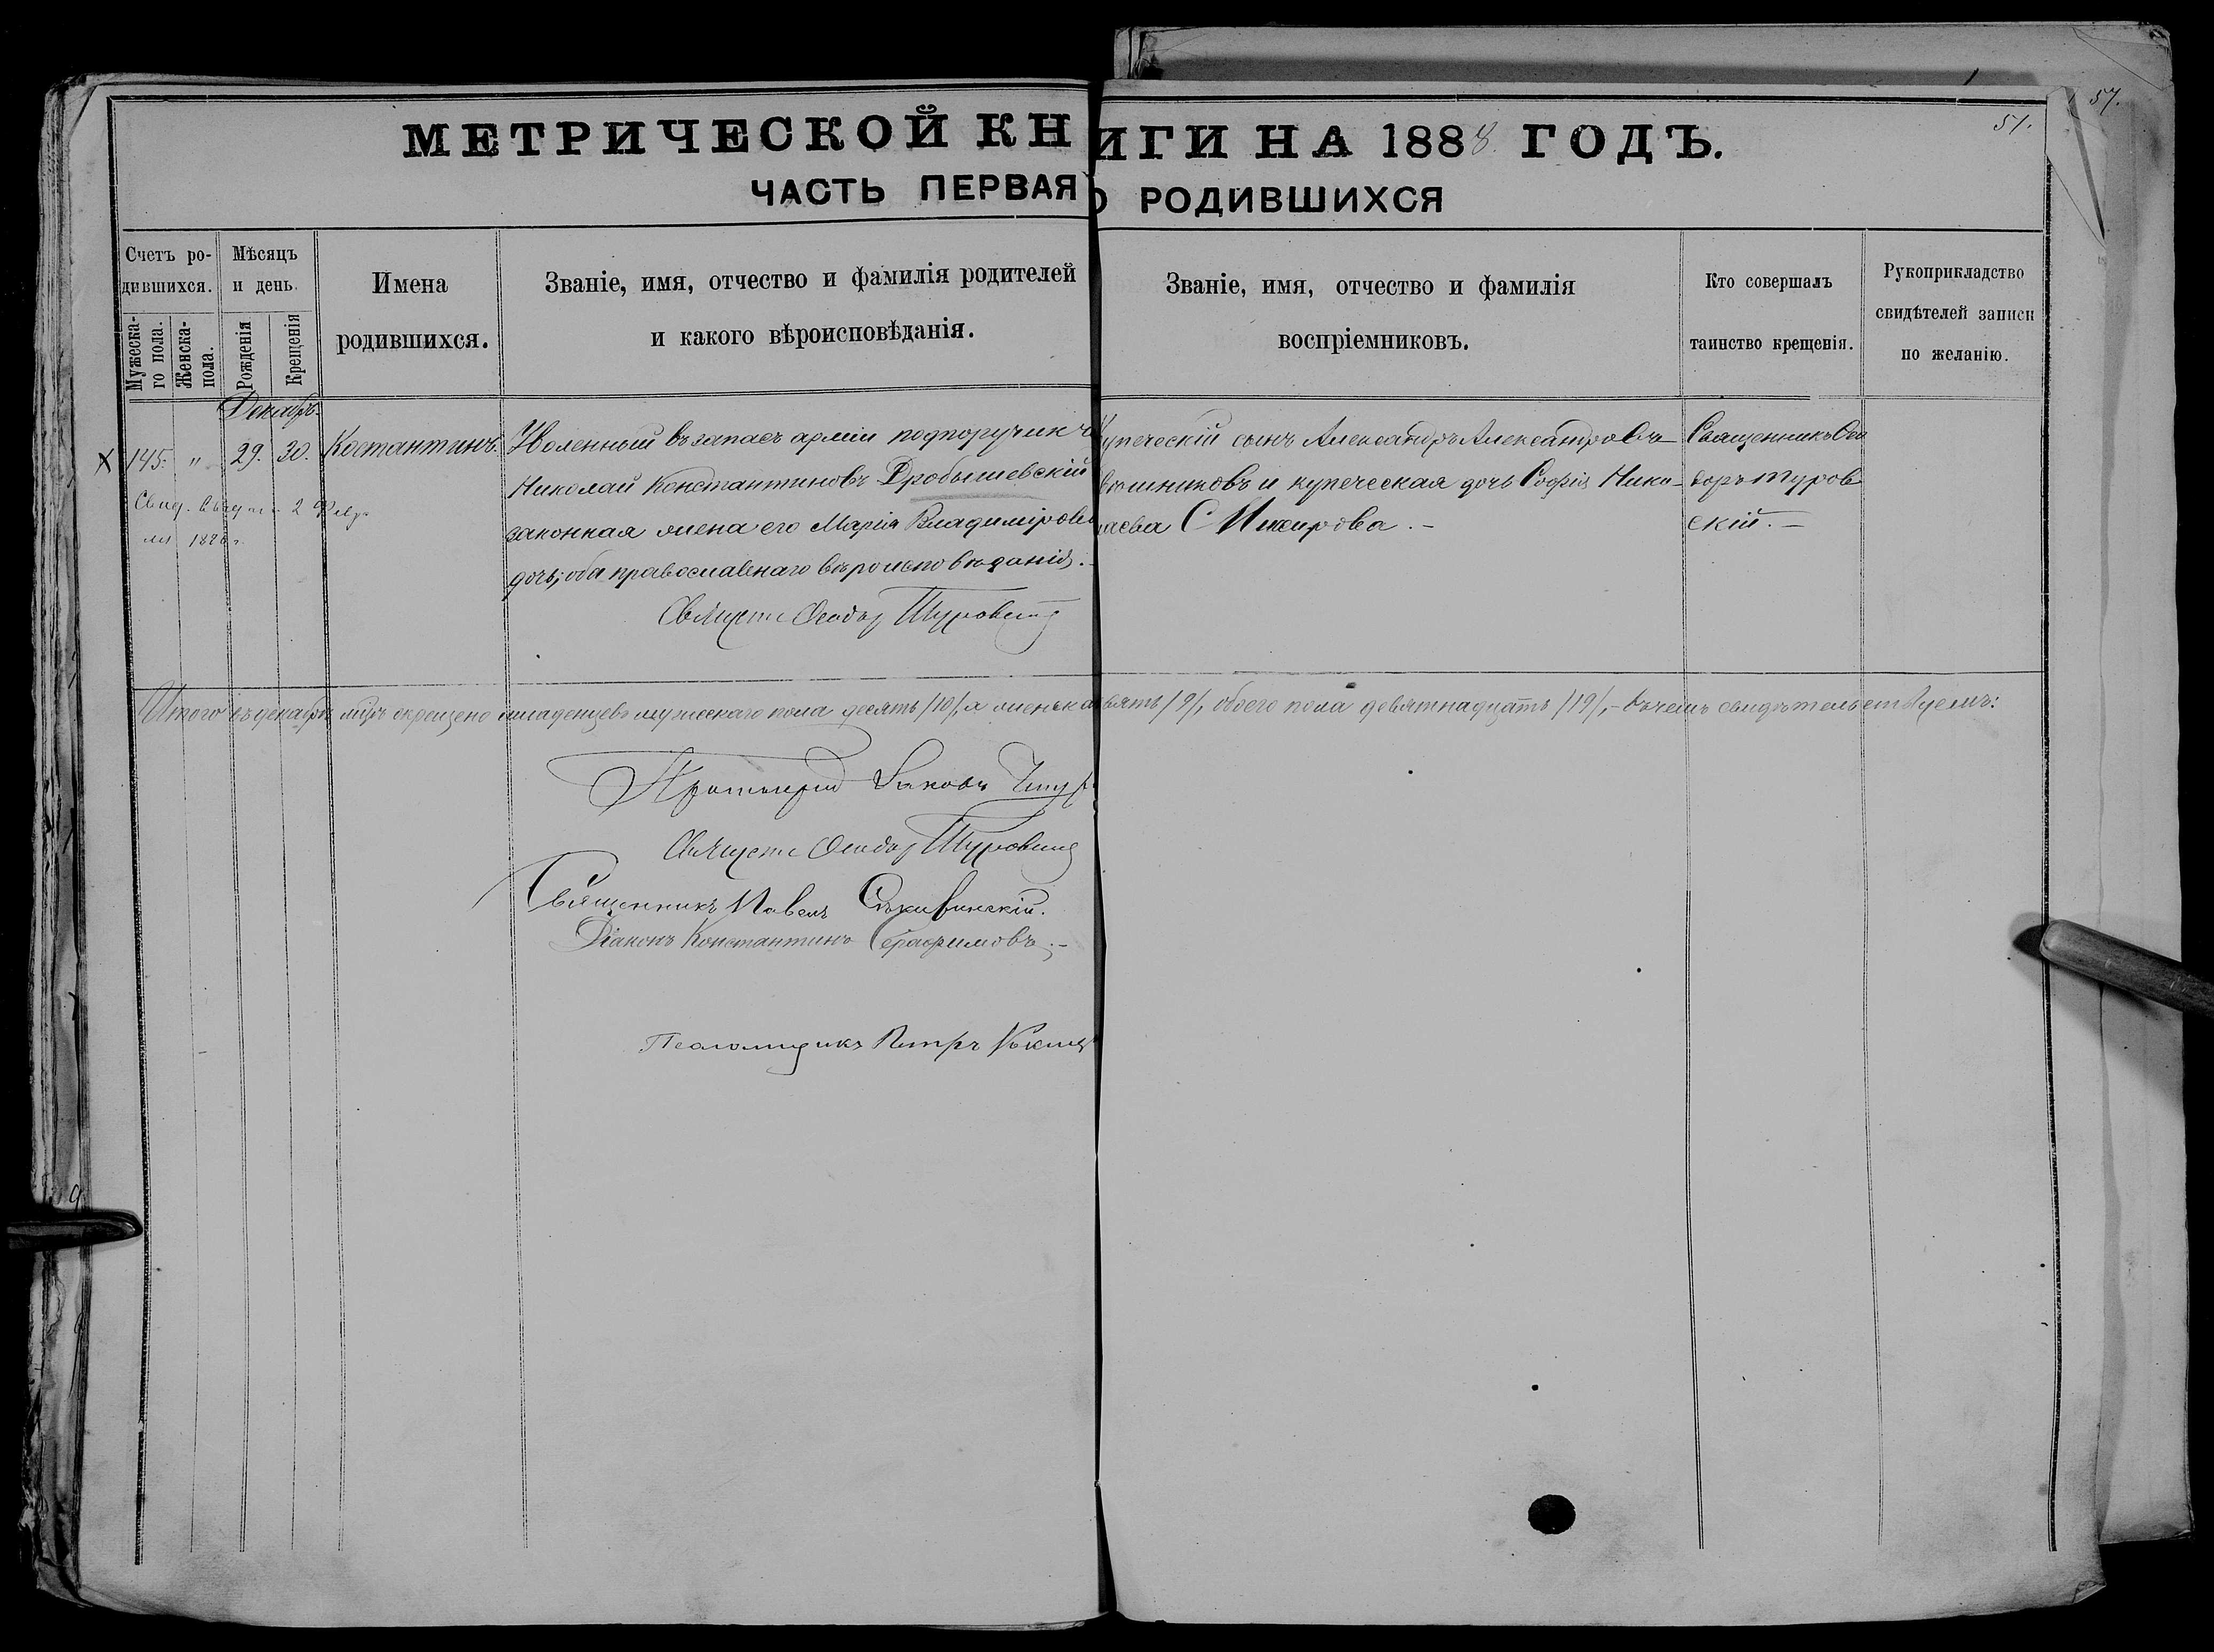 57.
51.
МЕТРИЧЕСКОЙ КНИГИ НА 1888 ГОДЪ.
ЧАСТЬ ПЕРВАЯ О РОДИВШИХСЯ
Счетъ ро-
дившихся.
Мужеска-
го пола.
Женска-
пола.
Мѣсяцъ
и день.
Рожденія
Крещенія
Имена
родившихся.
Званіе, имя, отчество и фамилія родителей
и какого вѣроисповѣданія.
Званіе, имя, отчество и фамилія
воспріемниковъ.
Кто совершалъ
таинство крещенія.
Рукоприкладство
свидѣтелей записи
по желанію.
Декабрь
145. " 29. 30. Костантинъ.
Уволенный въ запасъ арміи подпоручикъ
Николай Константиновъ Дробышевскій
законная жена его Марія Владимірова
оба православнаго вѣроисповѣданія.
Священн Ѳеодоръ Туровскій
Купеческій сынъ Александръ Александровъ
и купеческая дочь Софія Нико-
лаева
Священникъ Ѳео
доръ Туров
скій.
Свид. выдано 2 Февра
ля
Итого въ декабрѣ мцѣ окрещено младенцевъ мужескаго пола десять /10/, а женска девять /9/, обоего пола девятнадцать /19/, въ чемъ свидѣтельствуемъ:
Протоіерей Іаковъ
Священн Ѳеодоръ Туровскій
Священникъ Павелъ
Діаконъ Константинъ Серафимовъ.
Псаломщикъ Петръ